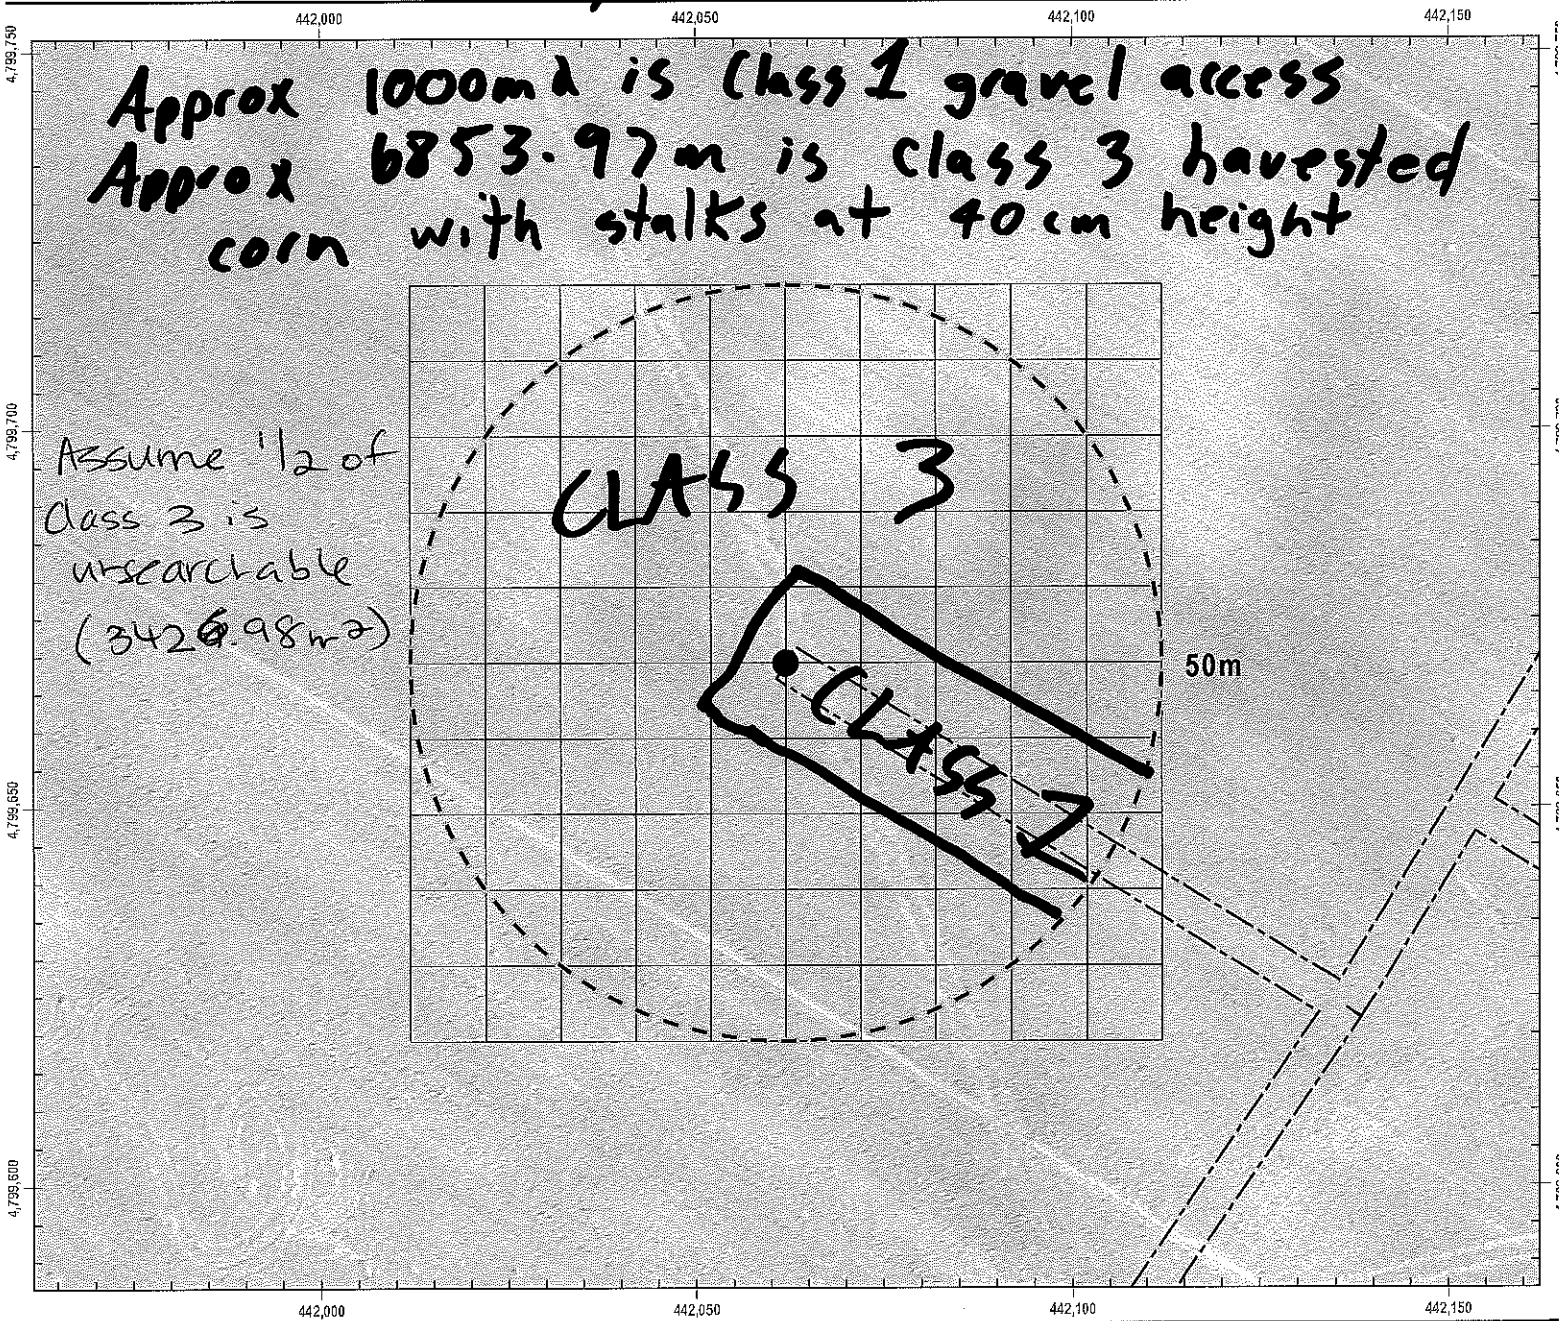 442,000 442,050 442,100 442,150
4,799,750
Approx 1000m2 is Class 1 gravel access
Approx 6853.97m is class 3 havested
corn with stalks at 40cm height
4,799,700
Assume 1/2 of
class 3 is
unsearchable
(3426.98m2)
CLASS 3
50m
CLASS 1
4,799,650
4,799,600
442,000 442,050 442,100 442,150